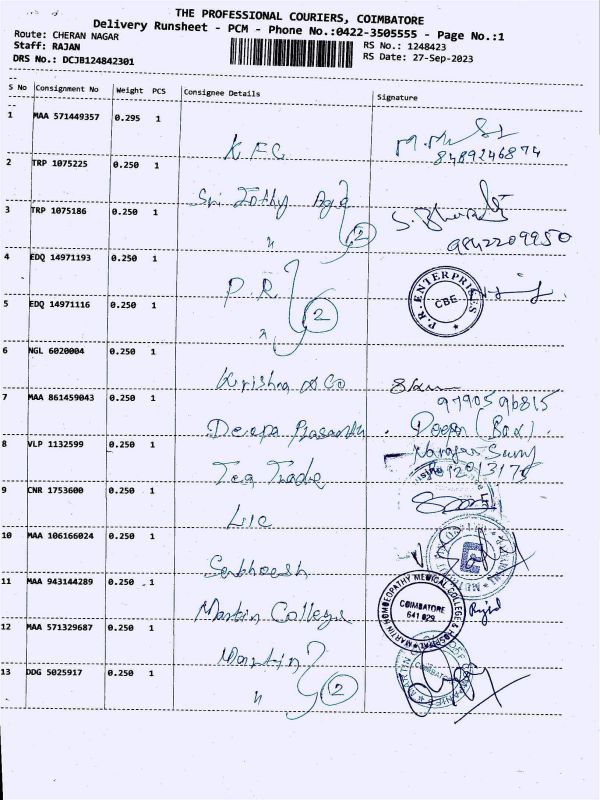 THE PROFESSIONAL COURIERS, COIMBATORE
Delivery Runsheet - PCM - Phone No.:0422-3505555 - Page No.:1
Route: CHERAN NAGAR
RS No.: 1248423
Staff: RAJAN
RS Date: 27-Sep-2023
DRS No.: DCJB124842301
S No Consignment No Weight PCS Consignee Details Signature
1 MAA 571449357 0.295 1
KFC
8489246874
2 TRP 1075225 0.250 1
Sri Jothy
3 TRP 1075186 0.250 1
" 2
9842209950
4 EDQ 14971193 0.250 1
P.R.
P.R. ENTERPRISES CBE
5 EDQ 14971116 0.250 1
" 2
6 NGL 6020004 0.250 1
Krishna & Co
7 MAA 861459043 0.250 1
9790596815
Deepa Prasanth
8 VLP 1132599 0.250 1
Tea Trade
9 CNR 1753600 0.250 1
LIC
10 MAA 106166024 0.250 1
Santhosh
11 MAA 943144289 0.250 1
Martin College
MARTIN HOMOEOPATHY MEDICAL COLLEGE & HOSPITAL
COIMBATORE
641 029
12 MAA 571329687 0.250 1
Martin
13 DDG 5025917 0.250 1
" 2